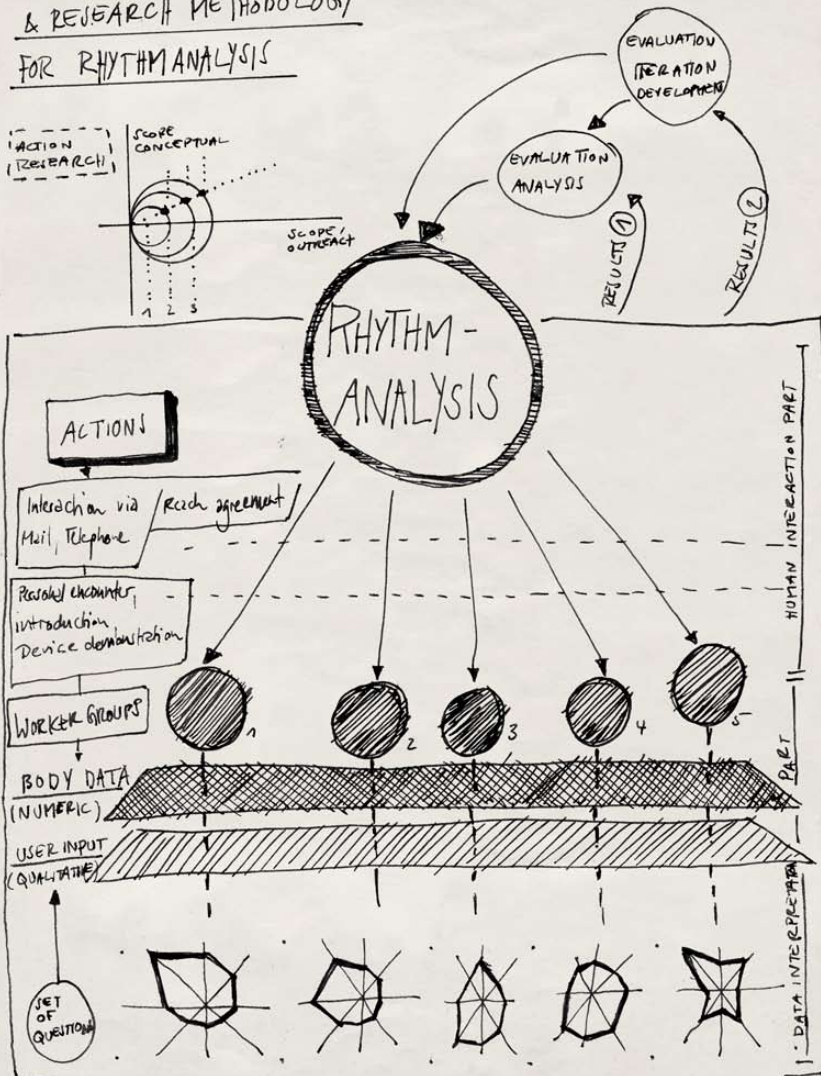 & RESEARCH METHODOLOGY
FOR RHYTHMANALYSIS
ACTION
RESEARCH
SCOPE
CONCEPTUAL
SCOPE/
OUTREACH
1 2 3
EVALUATION
ITERATION
DEVELOPMENT
EVALUATION
ANALYSIS
RESULTS 1
RESULTS 2
RHYTHM-
ANALYSIS
ACTIONS
Interaction via
Mail, Telephone
Reach agreement
Personal encounter,
introduction
Device demonstration
WORKER GROUPS
1
2
3
4
5
BODY DATA
(NUMERIC)
USER INPUT
(QUALITATIVE)
SET
OF
QUESTIONS
HUMAN INTERACTION PART
DATA INTERPRETATION PART